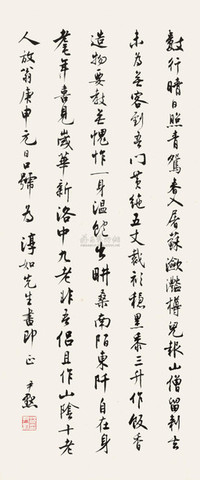 數行晴日照青鴛香入屠蘇瀲灩樽兒報山僧留刺去
未為無客到吾門黃絁五丈裁衫穩黑黍三升作飯香
造物要教無愧怍一身溫飽出耕桑南陌東阡自在身
耄年喜見歲華新洛中九老非吾侶且作山陰十老
人放翁庚申元日口號為淳如先生書即正尹默